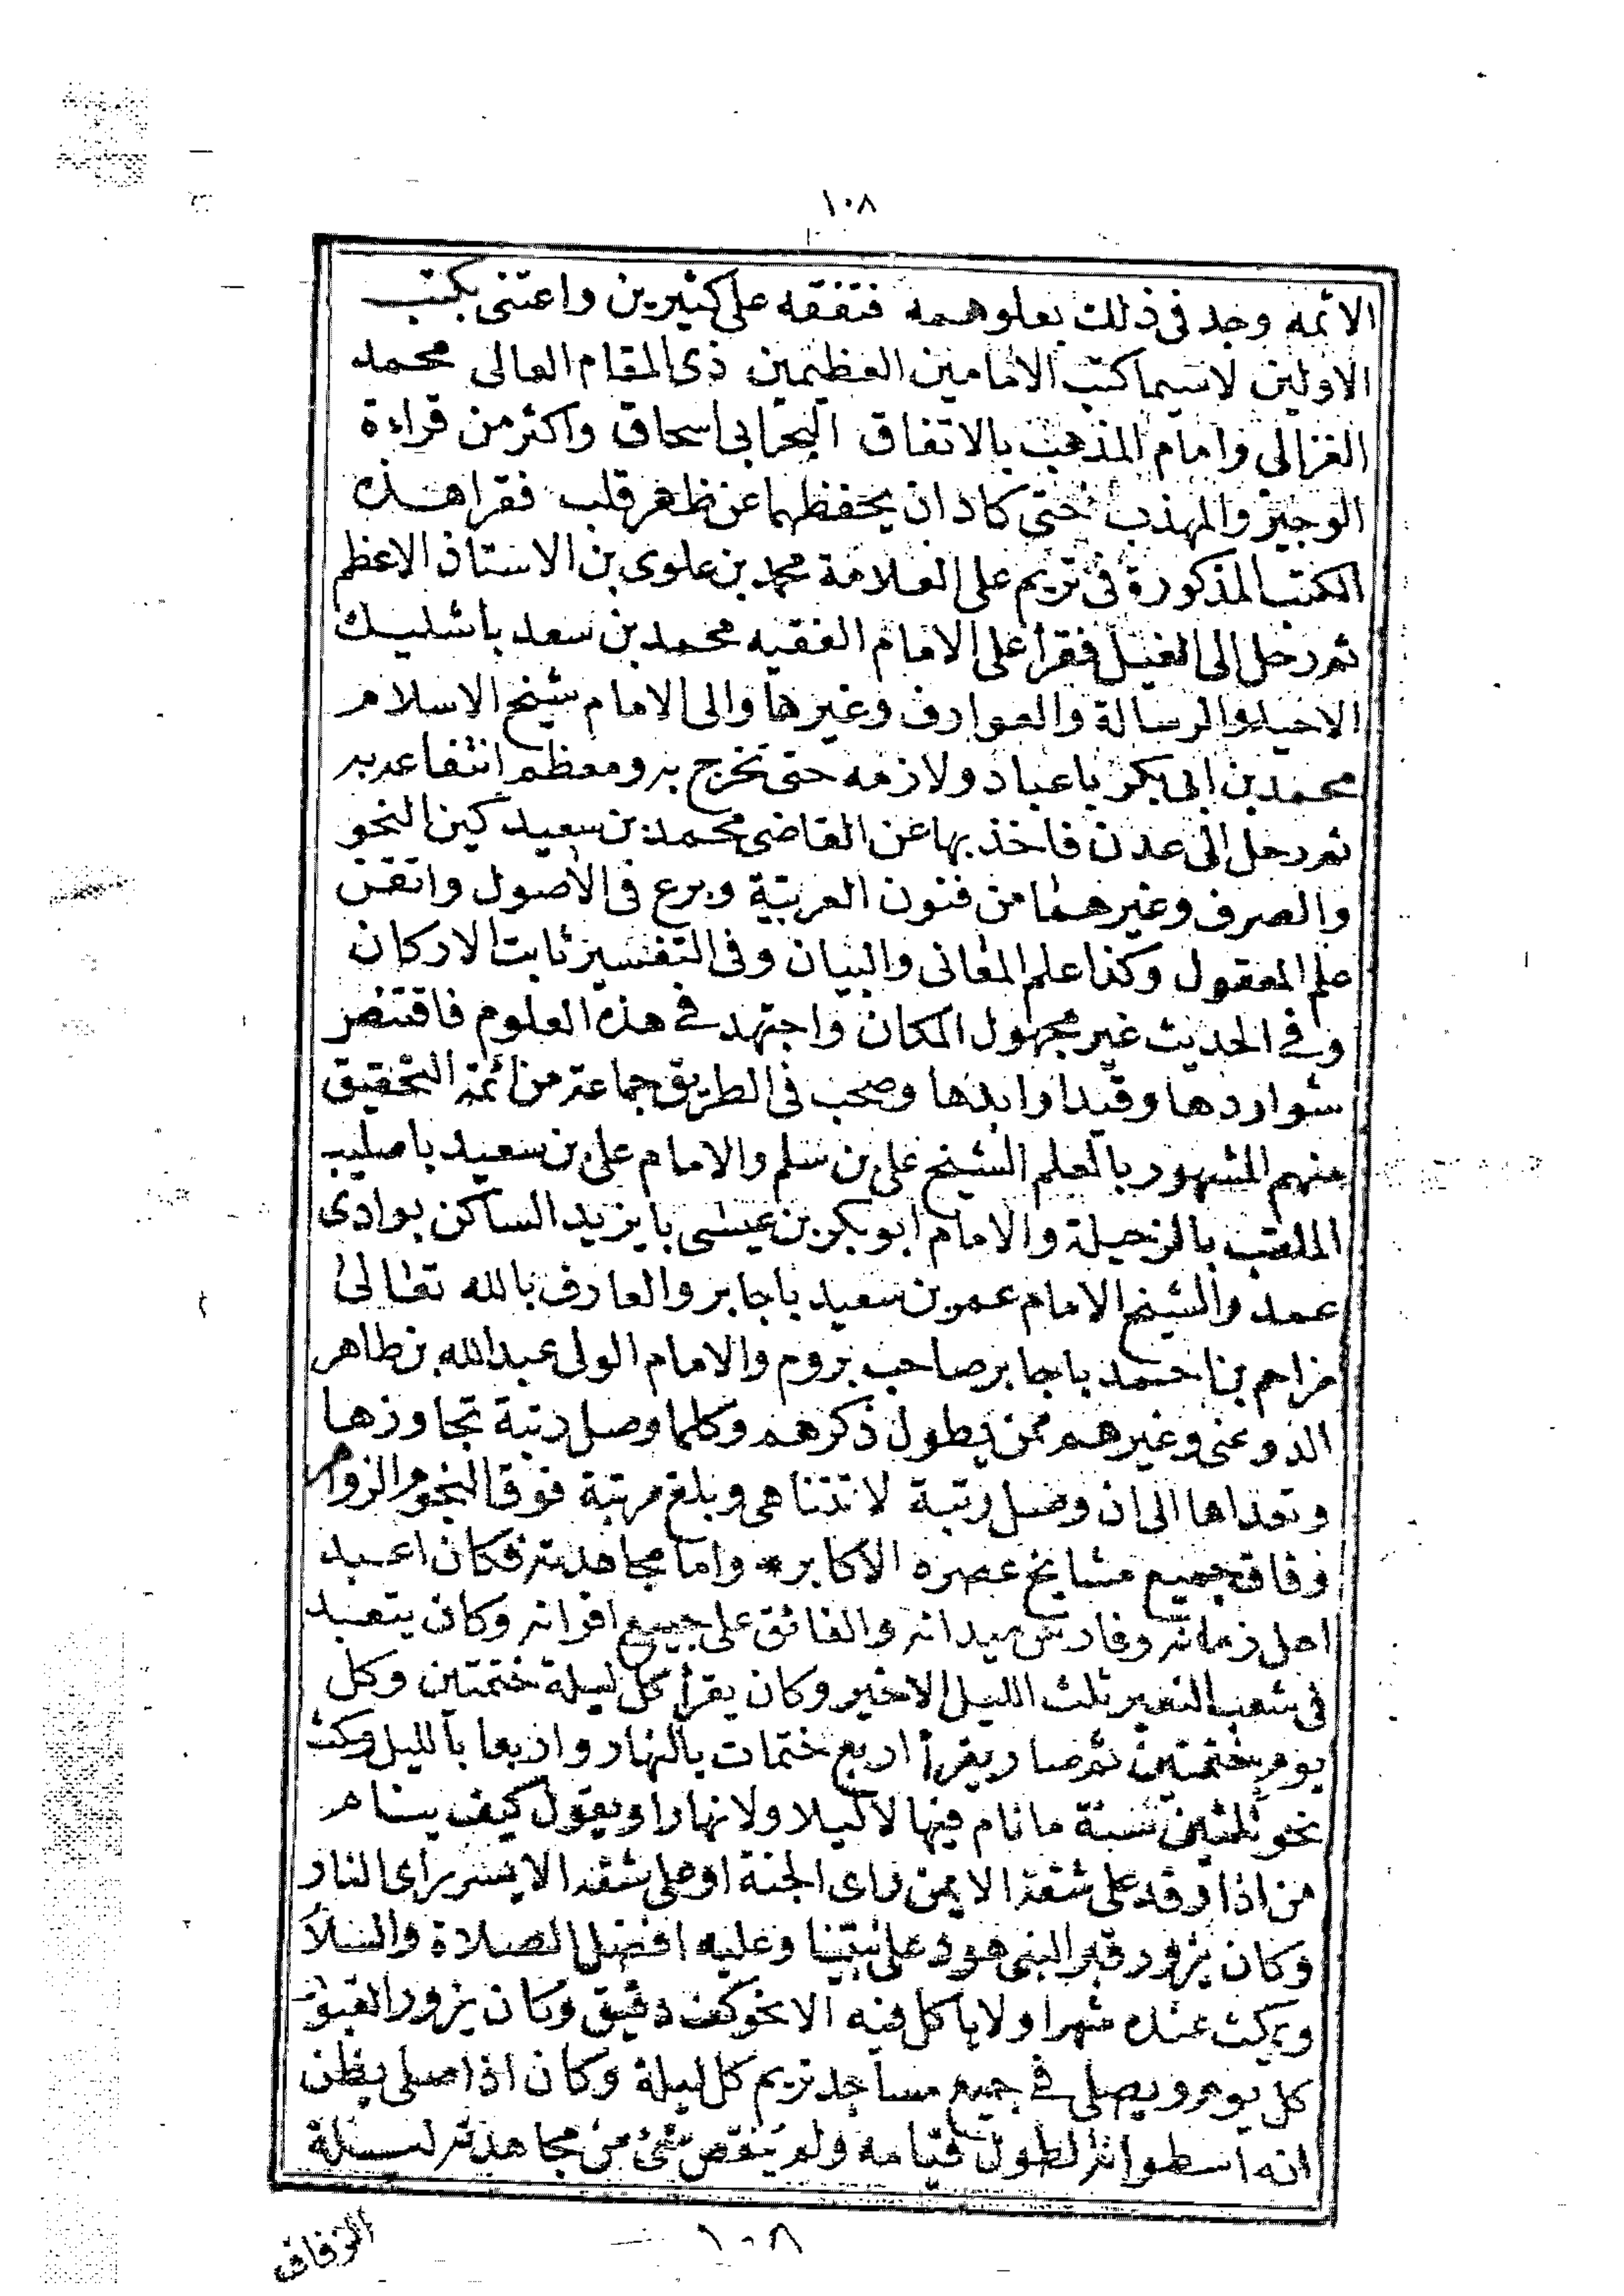 ١٠٨
الائمه وجد فى ذلك بعلو همه فتفقه على كثيرين واعتنى بكتب
الاولين لاسيما كتب الامامين العظيمين ذى المقام العالى محمد
الغزالى وامام المذهب بالاتفاق البحرابى اسحاق واكثر من قراءة
الوجيز والمهذب حتى كاد ان يحفظهما عن ظهر قلب فقرا هذه
الكتب المذكورة فى تريم على العلامة محمد بن علوى بن الاستاذ الاعظم
ثم رحل الى الغيل فقرأ على الامام الفقيه محمد بن سعد باشليك
الاحيا والرسالة والعوارف وغيرها والى الامام شيخ الاسلام
محمد بن ابى بكر باعباد ولازمه حتى تخرج به ومعظم انتفاعه به
ثم رحل الى عدن فاخذ بها عن القاضى محمد بن سعيد كبن النحو
والصرف وغيرهما من فنون العربية وبرع فى الاصول واتقن
علم المعقول وكذا علم المعانى والبيان وفى التفسير ثابت الاركان
وفى الحديث غير مجهول المكان واجتهد فى هذه العلوم فاقتنص
شواردها وقيد اوابدها وصحب فى الطريق جماعة من ائمة التحقيق
منهم المشهور بالعلم الشيخ على بن سلم والامام على بن سعيد باصليب
الملقب بالرخيلة والامام ابو بكر بن عيسى بايزيد الساكن بوادى
عمد والشيخ الامام عمر بن سعيد باجابر والعارف بالله تعالى
مزاحم بن احمد باجابر صاحب بروم والامام الولى عبدالله بن طاهر
الدوعنى وغيرهم ممن يطول ذكرهم وكلما وصل رتبة تجاوزها
وتعداها الى ان وصل رتبة لا تتناهى وبلغ مرتبة فوق النجوم الزواهر
وفاق جميع مشايخ عصره الاكابر * واما مجاهدته فكان اعبد
اهل زمانه وفارس ميدانه والفائق على جميع اقرانه وكان يتعبد
فى شعب النعير ثلث الليل الاخير وكان يقرأ كل ليلة ختمتين وكل
يوم ختمتين ثم صار يقرأ اربع ختمات بالنهار واربعا بالليل ومكث
نحو ثلثين سنة ما نام فيها لا ليلا ولا نهارا ويقول كيف ينام
من اذا رقد على شقه الايمن راى الجنة او على شقه الايسر راى النار
وكان يزور قبر النبى هود على نبينا وعليه افضل الصلاة والسلا
ويمكث عنده شهرا ولا ياكل فيه الا نحو كف دقيق وكان يزور القبور
كل يوم ويصلى فى جميع مساجد تريم كل ليلة وكان اذا صلى يظن
انه اسطوانة لطول قيامه ولم ينقص شئ من مجاهدته ليلة
الزفاف
١٠٨